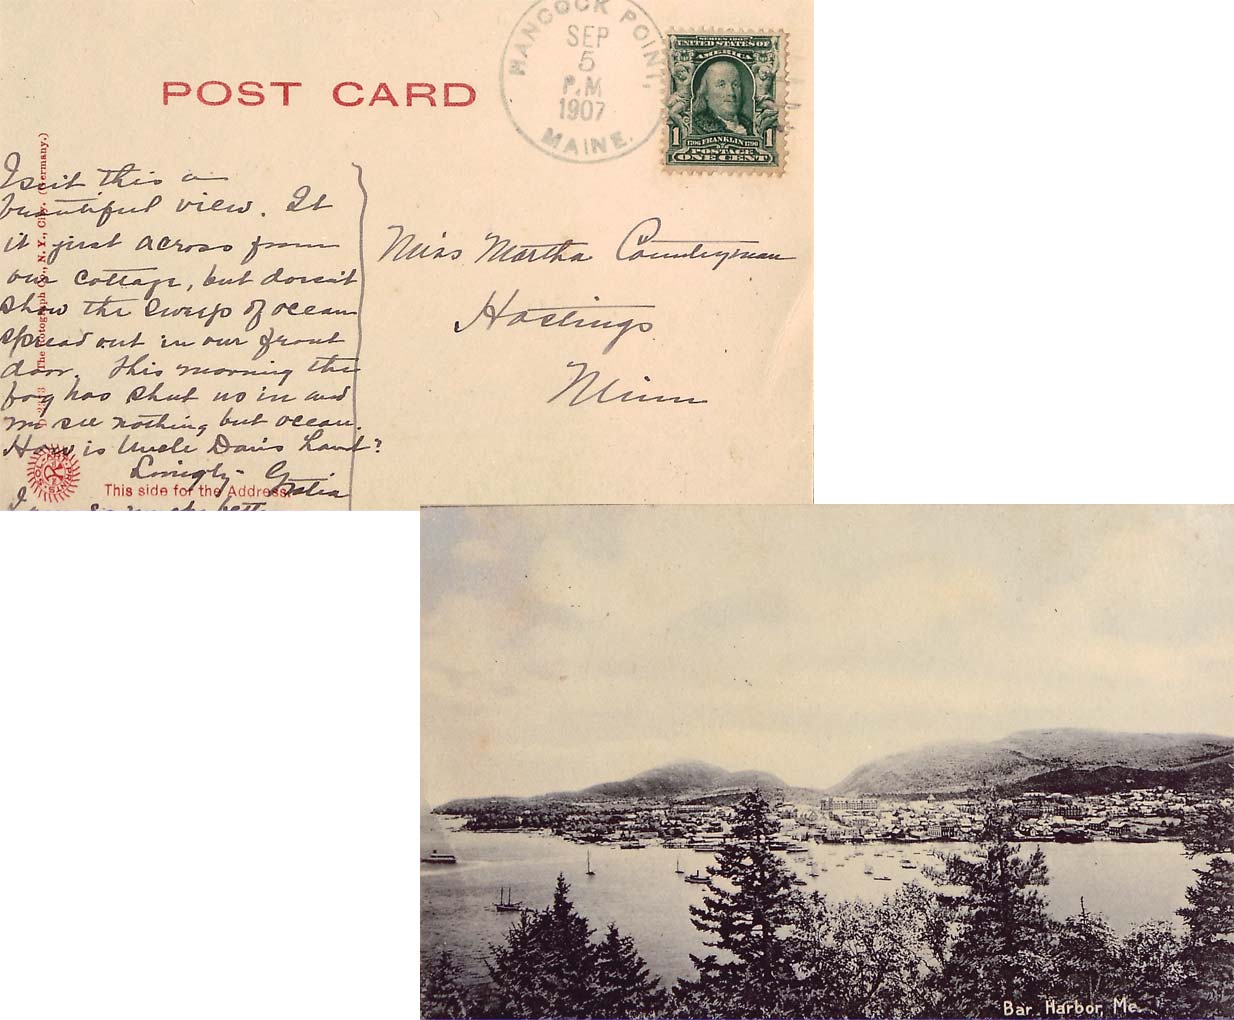 POST CARD
HANCOCK POINT,
SEP
5
P.M
1907
MAINE.
SERIES 1902
UNITED STATES OF
AMERICA
1 1
1706 FRANKLIN 1790
POSTAGE
ONE CENT
Isn't this a
beautiful view. It
it just across from
our cottage, but doesn't
show the sweep of ocean
spread out in our front
door. This morning the
fog has shut us in and
we see nothing but ocean.
How is Uncle Dan's hand?
Lovingly-
Miss Martha Countryman
Hastings
Minn
The Rotograph Co., N. Y., City. (Germany.)
This side for the Address.
Bar Harbor, Me.